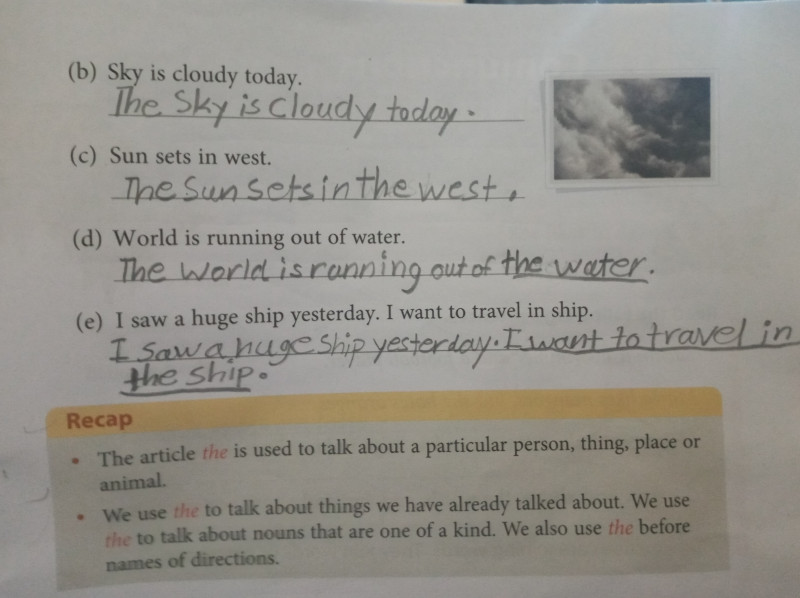 (b) Sky is cloudy today.
The Sky is cloudy today.
(c) Sun sets in west.
The Sun sets in the west.
(d) World is running out of water.
The World is running out of the water.
(e) I saw a huge ship yesterday. I want to travel in ship.
I saw a huge ship yesterday. I want to travel in
the ship.
Recap
• The article the is used to talk about a particular person, thing, place or
animal.
• We use the to talk about things we have already talked about. We use
the to talk about nouns that are one of a kind. We also use the before
names of directions.